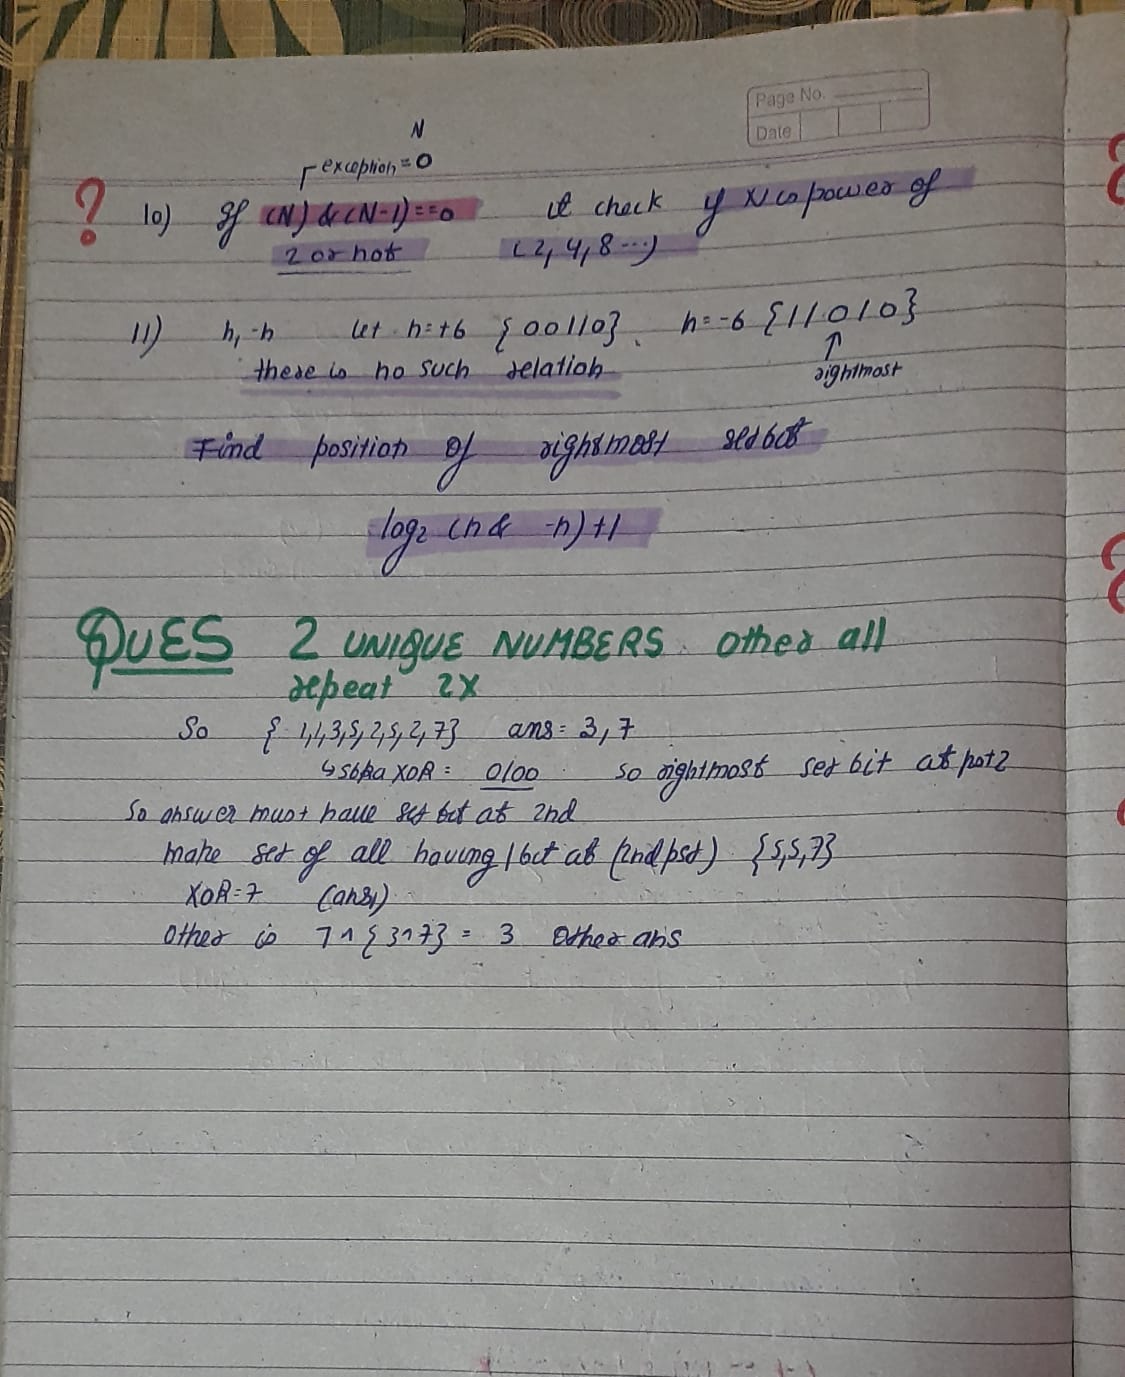 Page No.
Date
N
exception = 0
10) If (N) & (N-1) == 0 it check if N is power of
2 or not (2, 4, 8 ...)
11) n, -n let n = +6 {00110}, n = -6 {11010}
↑
there is no such relation rightmost
Find position of rightmost set bit
log₂ (n & -n) + 1
QUES 2 UNIQUE NUMBERS. Other all
repeat 2X
So { 1,1,3,5,2,5,2,7} ans = 3, 7
↳ sbka XOR = 0100 so rightmost set bit at pot 2
So answer must have set bit at 2nd
make set of all having 1 bit at (2nd pst) {5,5,7}
XOR = 7 (ans1)
Other is 7 ^ { 3^7} = 3 Other ans